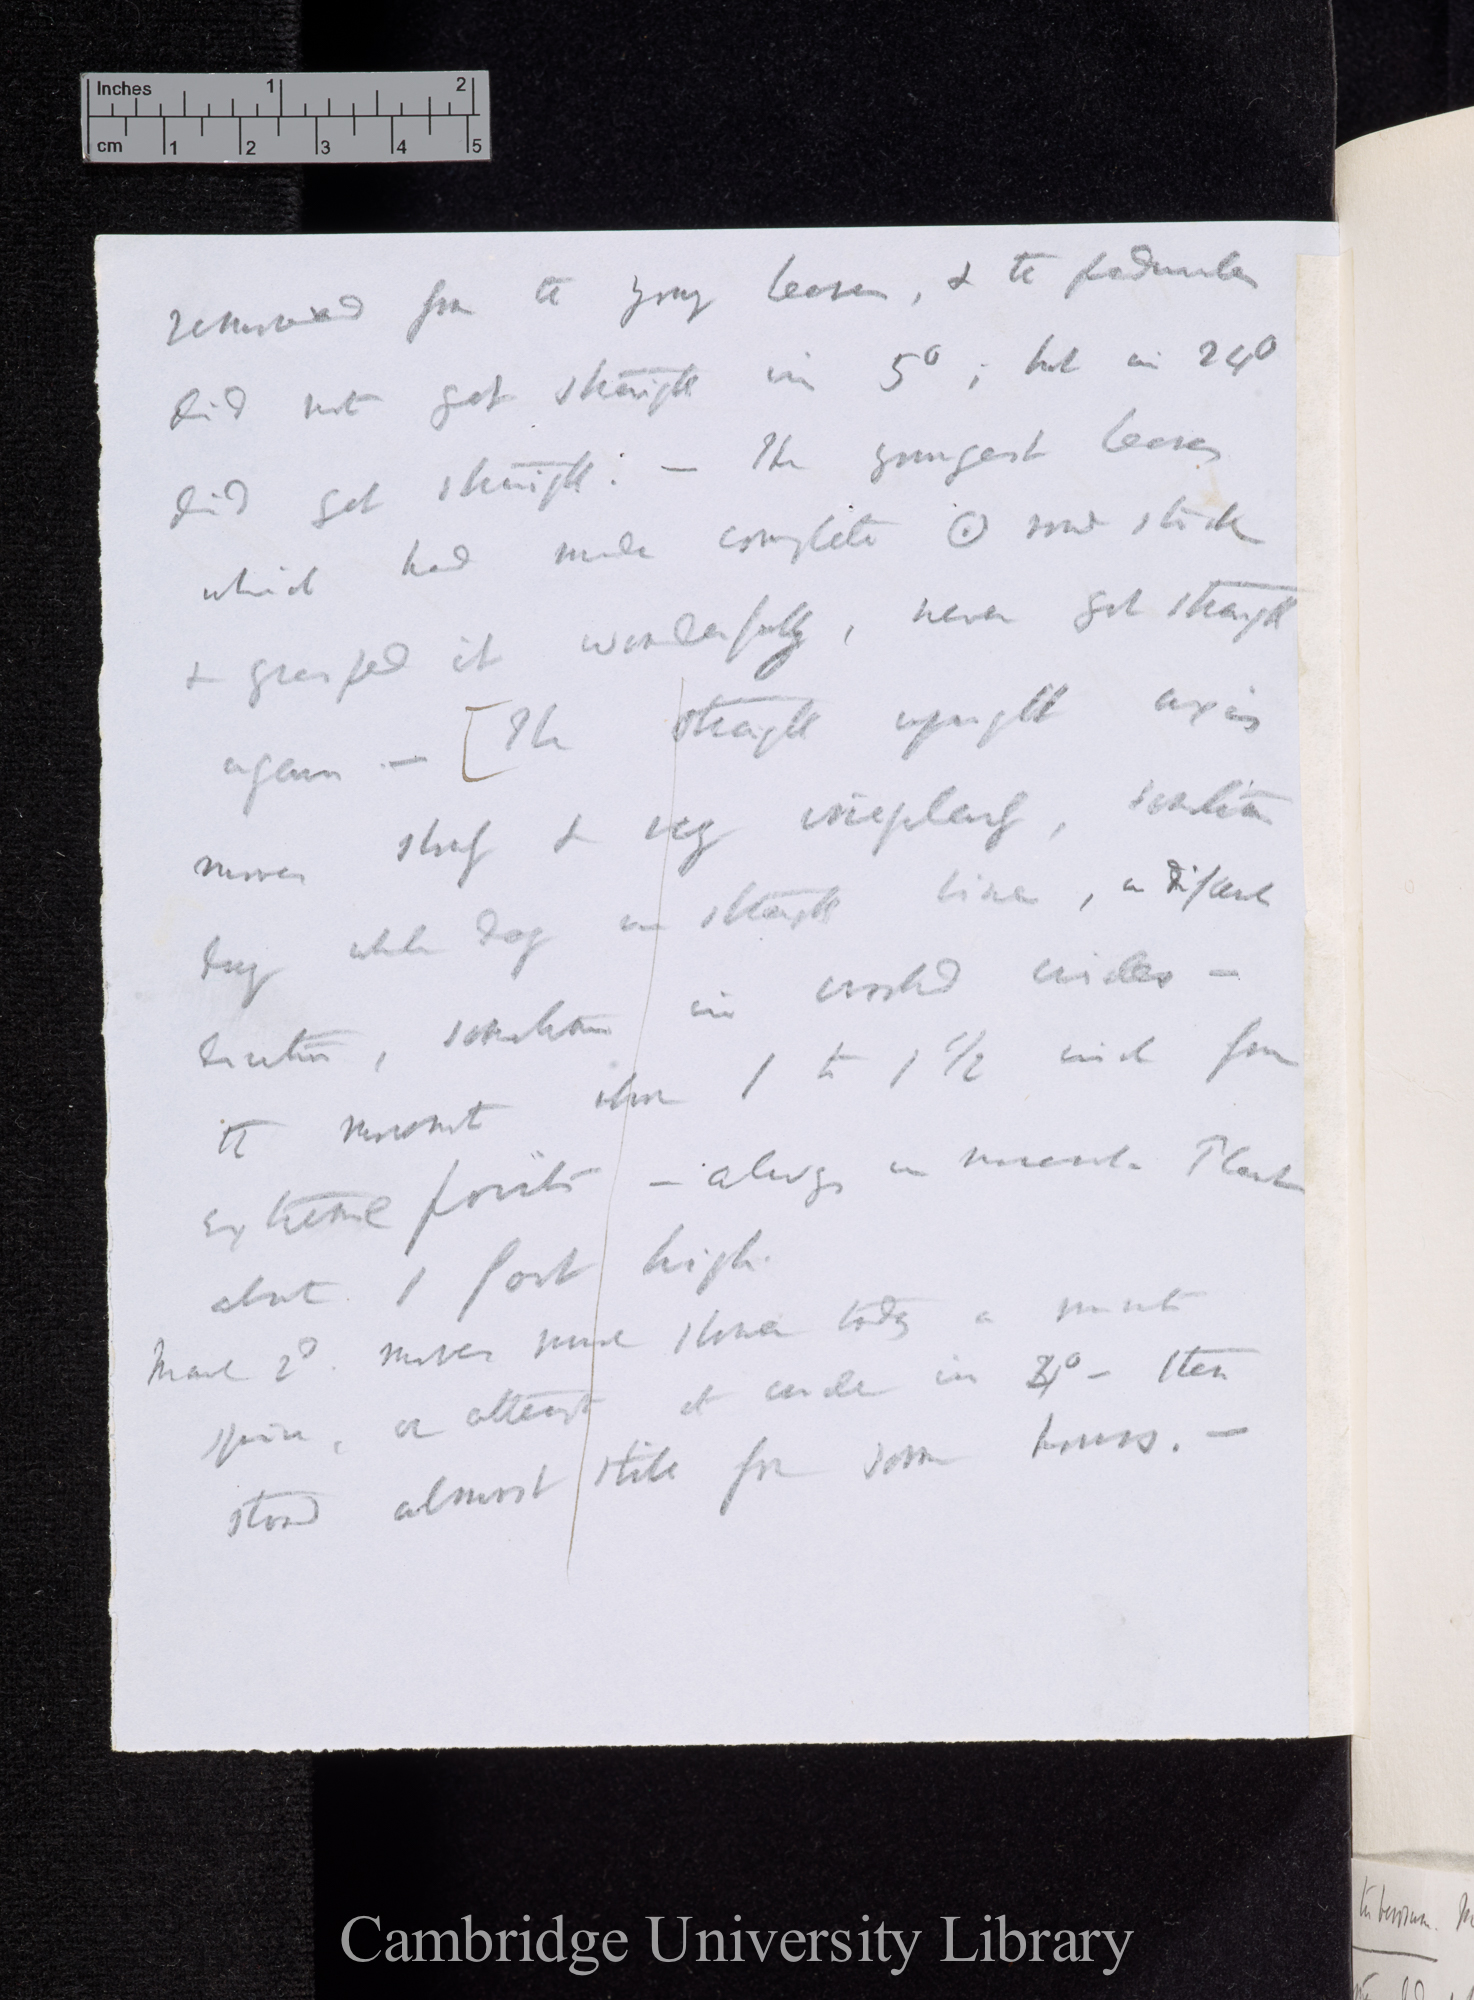 Inches 1 2
cm 1 2 3 4 5
removed from the young leaves, & the peduncles
did not get straight in 5°; but in 24°
did get straight. — The youngest leaves
which had made complete ⊙ round stick
& grasped it wonderfully, never got straight
again — [The straight upright axis
moves slowly & very irregularly, sometimes
day while day in straight lines, in different
direction, sometimes in crooked circles —
the movement about 1 to 1 1/2 inch from
extreme points — always in Plant
about 1 foot high.
March 2d. moves much slower today a minute
spire, or attempt at circle in 4° — then
stood almost still for some hours. —
tuberosum.
Cambridge University Library